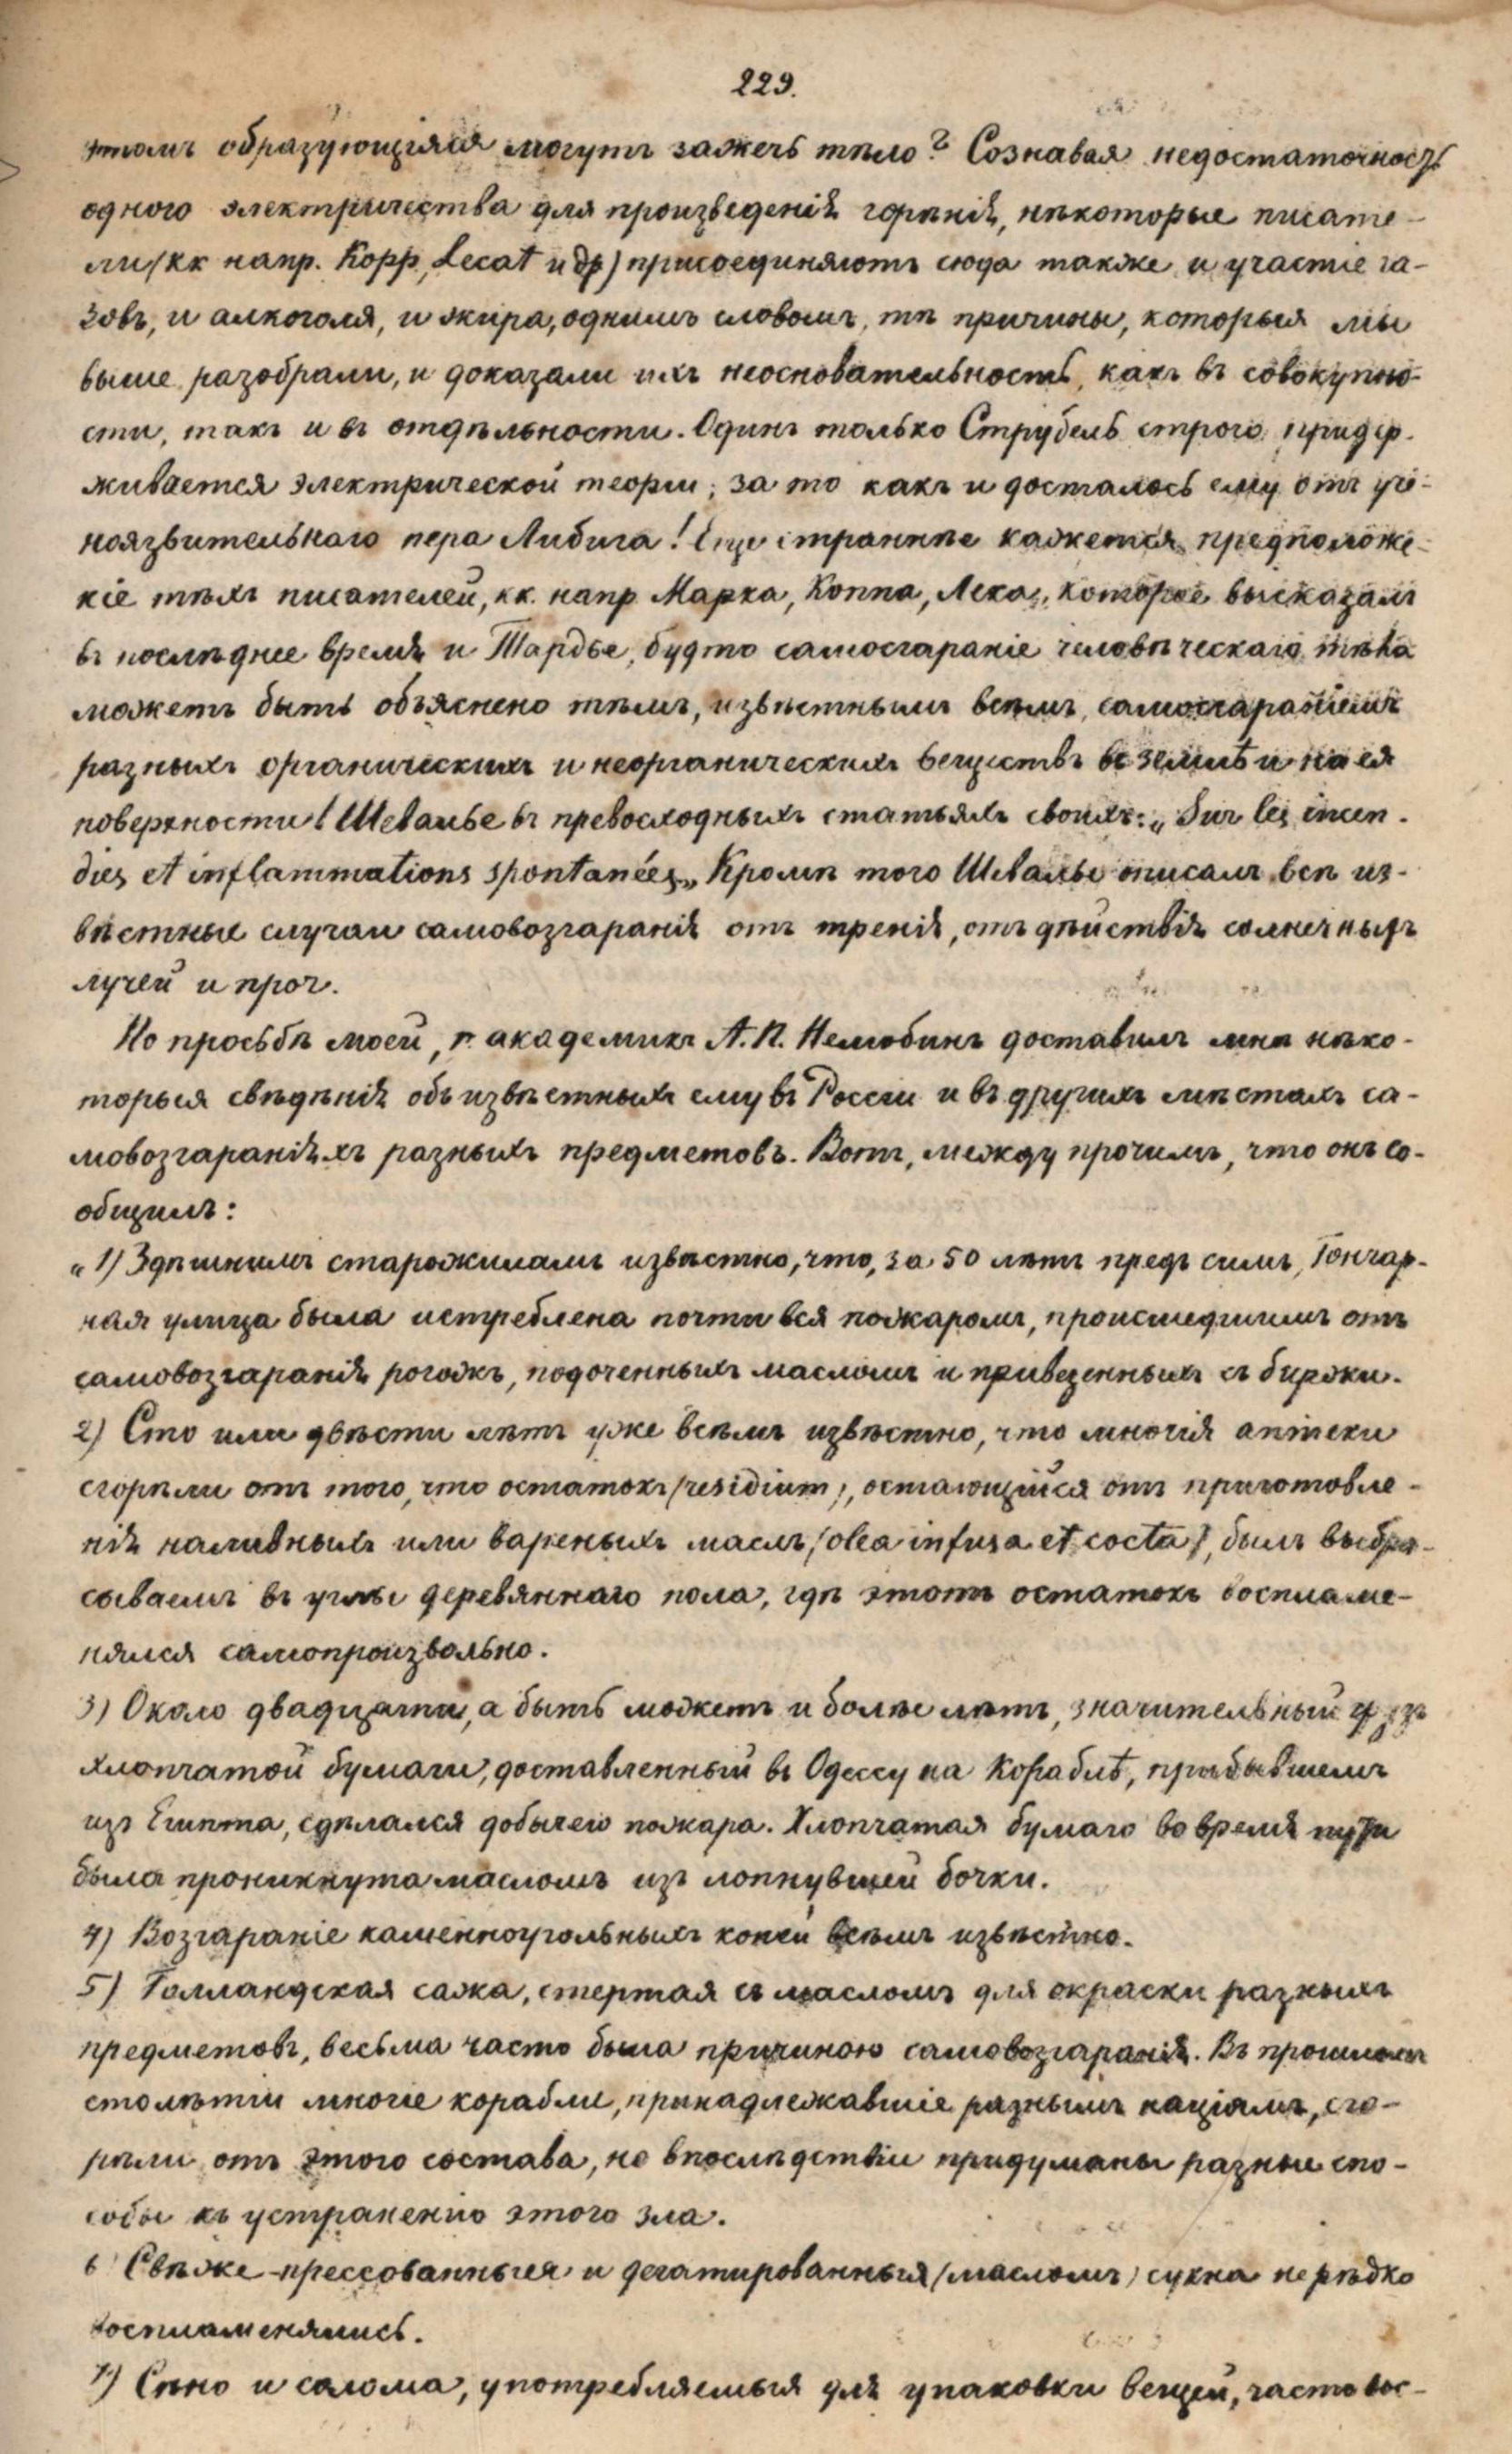 229.
этомъ образующіяся могутъ зажечь тѣло? Сознавая недостаточность
одного электричества для произведенія горѣнія, нѣкоторые писате-
ли (кк напр. Kopp, Lecat и др) присоединяютъ сюда также и участіе га-
зовъ, и алкоголя, и жира, однимъ словомъ, тѣ причины, которыя мы
выше разобрали, и доказали ихъ неосновательность, какъ въ совокупно-
сти, такъ и въ отдѣльности. Одинъ только Струбель строго придер-
живается электрической теоріи; за то какъ и досталось ему отъ уче-
ноязвительнаго пера Либига! Еще страннѣе кажется предположе-
ніе тѣхъ писателей, кк. напр Марка, Коппа, Лека, которое высказалъ
въ послѣднее время и Тардье, будто самосгараніе человѣческаго тѣла
можетъ быть объяснено тѣмъ, извѣстнымъ всѣмъ, самосгараніемъ
разныхъ органическихъ и неорганическихъ веществъ въ землѣ и на ея
поверхности! Шевалье въ превосходныхъ статьяхъ своихъ: „Sur les incen-
dies et inflammations spontanées„ Кромѣ того Шевалье описалъ всѣ из-
вѣстные случаи самовозгаранія отъ тренія, отъ дѣйствія солнечныхъ
лучей и проч.
По просьбѣ моей, г. академикъ А. П. Нелюбинъ доставилъ мнѣ нѣко-
торыя свѣдѣнія объ извѣстныхъ ему въ Россіи и въ другихъ мѣстахъ са-
мовозгараніяхъ разныхъ предметовъ. Вотъ, между прочимъ, что онъ со-
общилъ:
„1) Здѣшнимъ старожиламъ извѣстно, что, за 50 лѣтъ предъ симъ, Гончар-
ная улица была истреблена почти вся пожаромъ, происшедшимъ отъ
самовозгаранія рогожъ, подоченныхъ масломъ и привезенныхъ съ биржи.
2) Сто или двѣсти лѣтъ уже всѣмъ извѣстно, что многія аптеки
сгорѣли отъ того, что остатокъ (residium), остающійся отъ приготовле-
нія наливныхъ или вареныхъ маслъ, (olea infusa et cocta), былъ выбра-
сываемъ въ углы деревяннаго пола, гдѣ этотъ остатокъ воспламе-
нялся самопроизвольно.
3) Около двадцати, а быть можетъ и болѣе лѣтъ, значительный грузъ
хлопчатой бумаги, доставленный въ Одессу на кораблѣ, прибывшемъ
изъ Египта, сдѣлался добычею пожара. Хлопчатая бумаго во время пути
была проникнута масломъ изъ лопнувшей бочки.
4) Возгараніе каменноугольныхъ копей всѣмъ извѣстно.
5) Голландская сажа, стертая съ масломъ для окраски разныхъ
предметовъ, весьма часто была причиною самовозгаранія. Въ прошломъ
столѣтіи многіе корабли, принадлежавшіе разнымъ націямъ, сго-
рѣли отъ этого состава, но впослѣдствіи придуманы разные спо-
собы къ устраненію этого зла.
6 Свѣже-прессованныя и декатированныя (масломъ) сукна нерѣдко
воспламенялись.
7) Сѣно и солома, употребляемыя для упаковки вещей, часто вос-